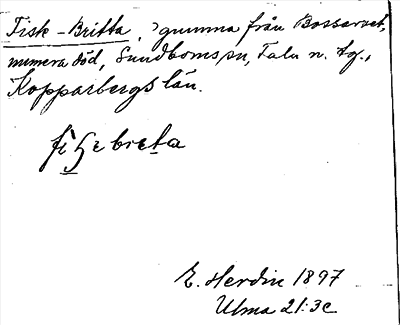 Fisk-Britta, gumma från Bossarvet,
numera död, Sundborns sn, Falu n. tg.,
Kopparbergs län.
fiʃebreta
E. Herdin 1897
Ulma 21:3c